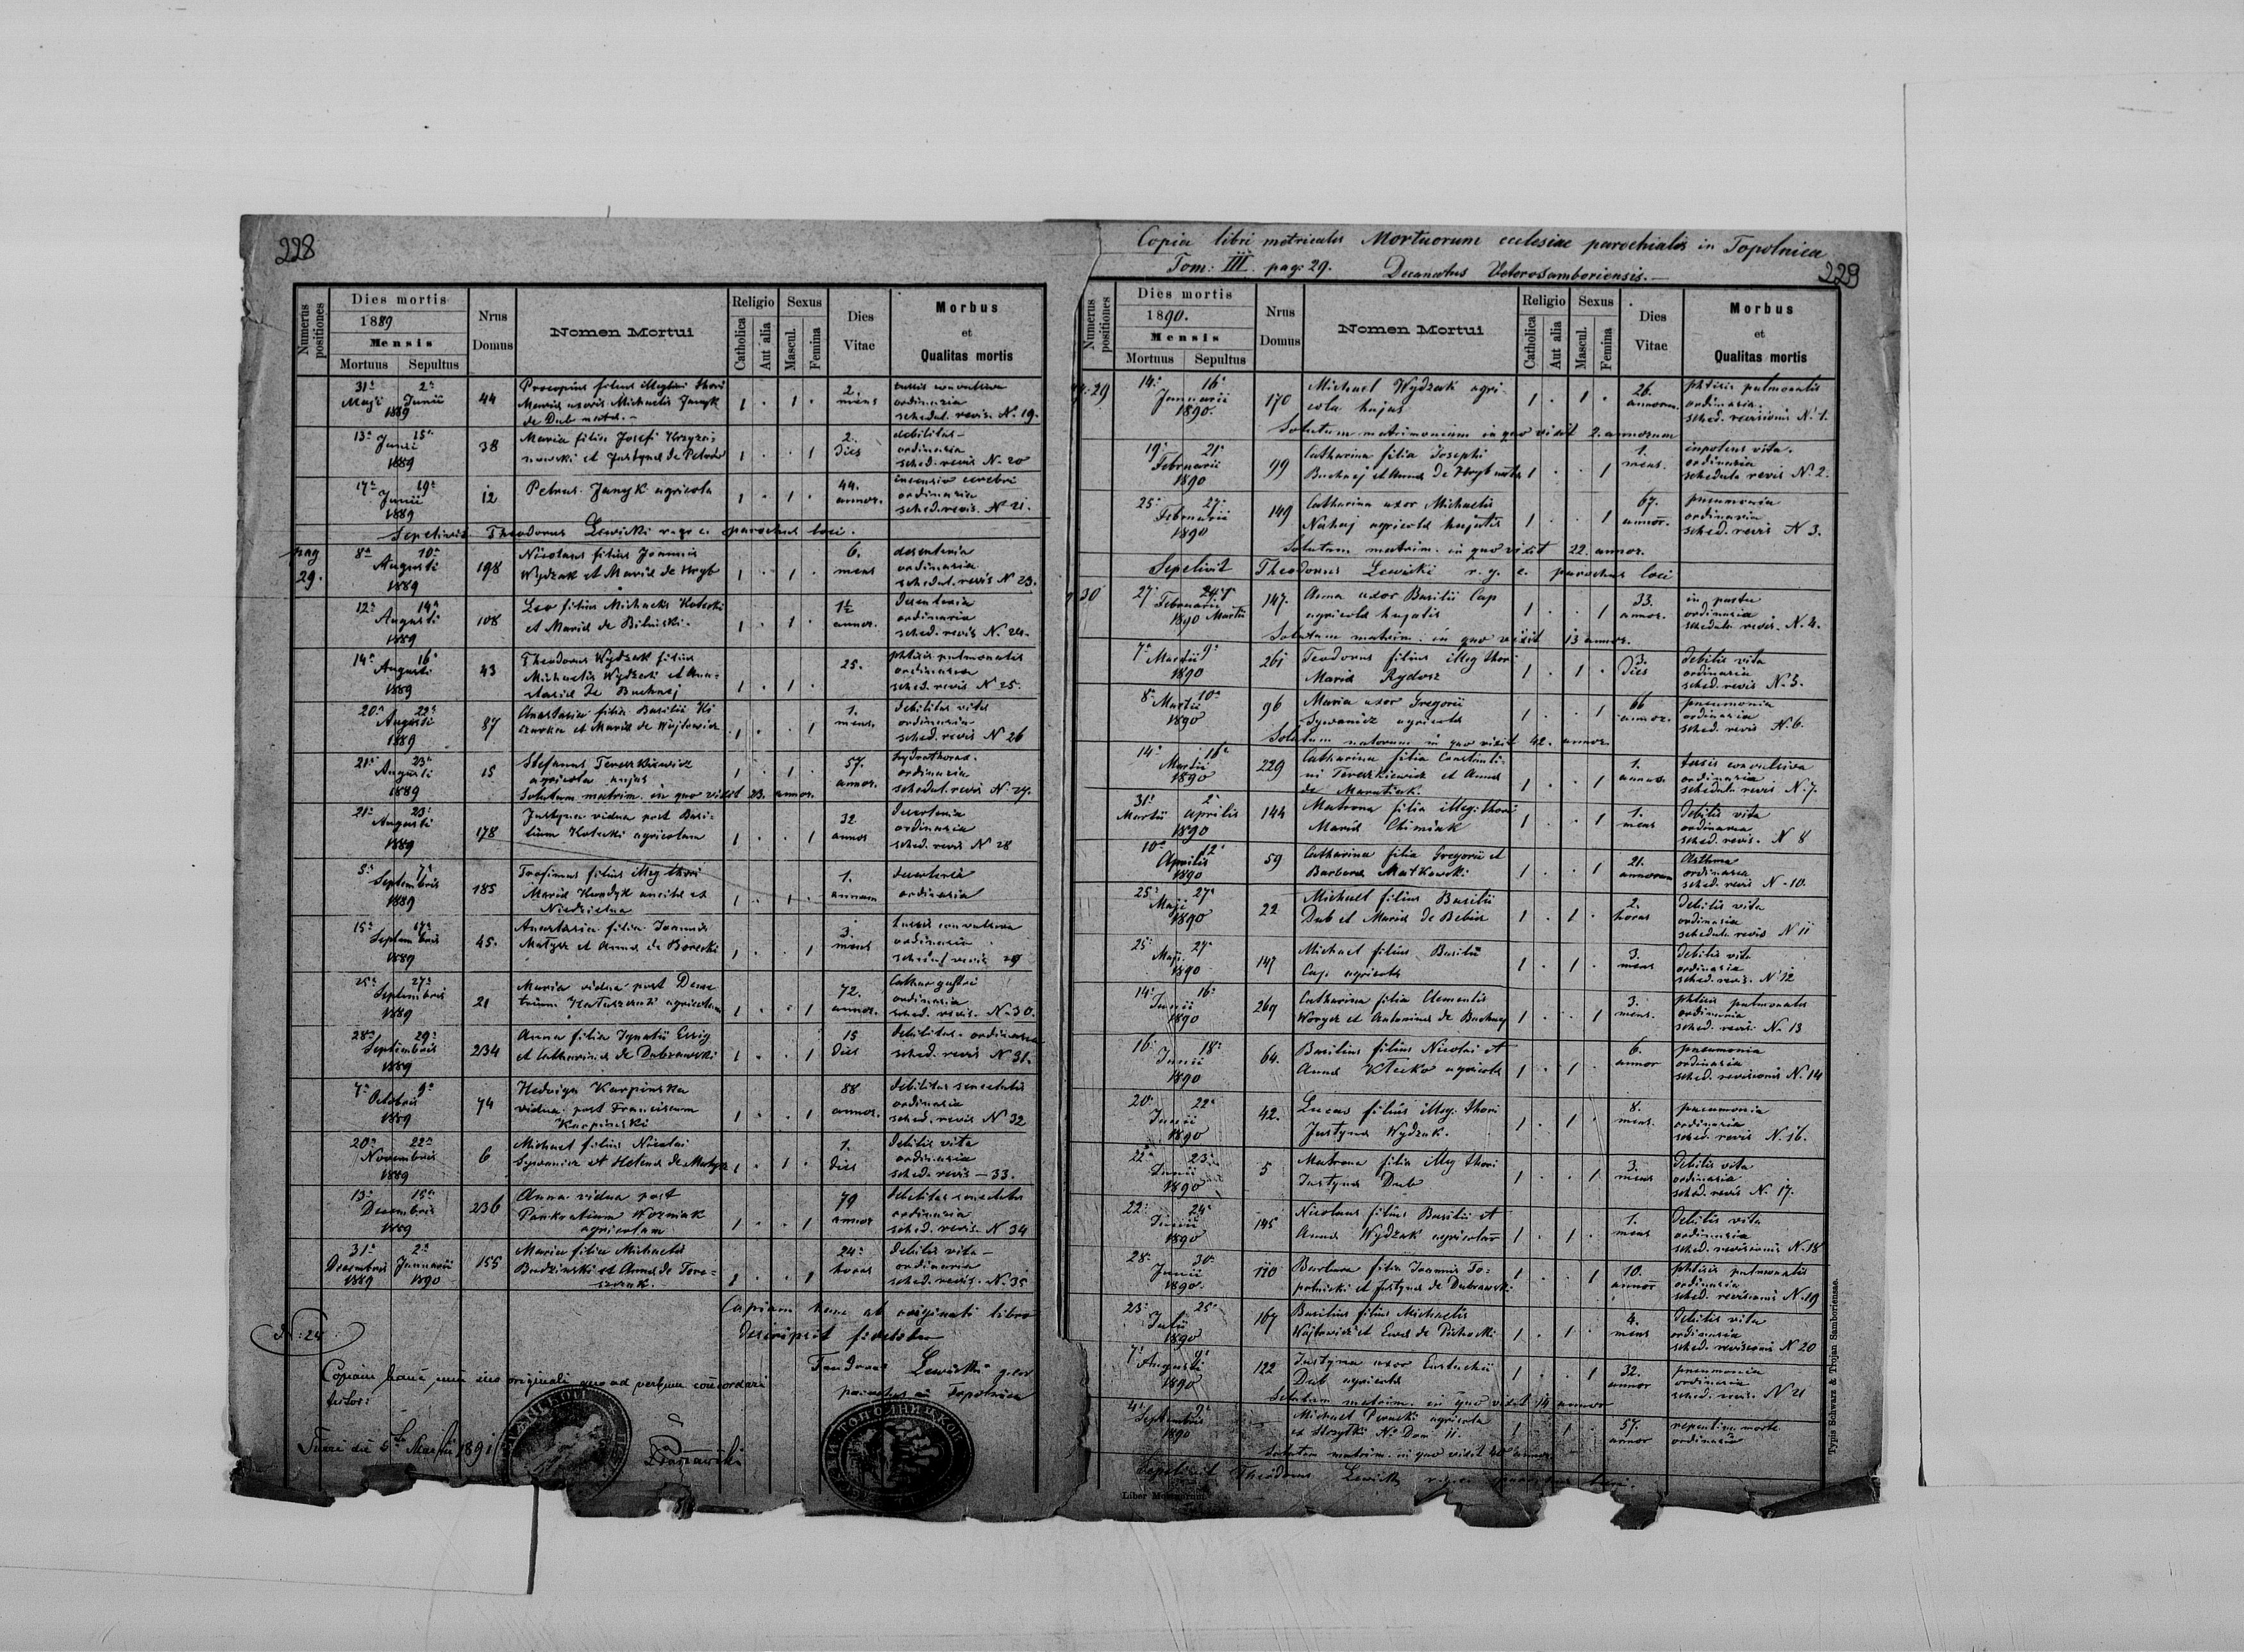 228
Numerus positiones
Dies mortis
1889
Mensis
Mortuus Sepultus
Nrus Domus
Nomen Mortui
Religio
Catholica
Aut alia
Sexus
Mascul.
Femina
Dies Vitae
Morbus
et
Qualitas mortis
31a Maji 2a Junii 1889 44 Procopius filius illegitimi thori
Mariae uxoris Michaelis Janyk
de Dub 1 . 1 . 2. mens
ordinaria
schedul. revis. N. 19.
13a 15a Junii 1889 38 Maria filia Josefi
et Justynae de 1 . . 1 2. dies debilitas
ordinaria
sched. revis N. 20
17a 19a Junii 1889 12 Petrus Janyk agricola 1 . 1 . 44. annor. cerebri
ordinaria
sched. revis. N 21.
Sepelivit Theodorus Lewicki r. g. c. parochus loci.
pag 29. 8a 10a Augusti 1889 198 Nicolaus filius Joannis
Wydzak et Mariae de Hryb 1 . 1 . 6. mens desenteria
ordinaria
schedul. revis N 23.
12a 14a Augusti 1889 108 Leo filius Michaelis Kotecki
et Mariae de Bilinski. 1 . 1 . 1½ annor. desenteria
ordinaria
sched. revis N. 24.
14a 16a Augusti 1889 43 Theodorus Wydzak filius
Michaelis Wydzak et Ana-
stasiae de Buchnej 1 . 1 . 25. phtisis pulmonalis
ordinaria
sched. revis N 25.
20a 22a Augusti 1889 87 Anastasia filia Basilii
et Mariae de Wojtowicz 1 . . 1 1. mens. debilitas vitae
ordinaria
sched. revis N 26
21a 23a Augusti 1889 15 Stefanus Tereszkiewicz
agricola hujas 1 . 1 . 57. annor.
ordinaria
schedul. revis N. 27.
Solutum matrim. in quo vixit 23. annor.
21a 23a Augusti 1889 178 Justyna vidua post Basi-
lium Kotecki agricolam 1 . . 1 32 annor desenteria
ordinaria
sched. revis N 28
5a 7a Septembris 1889 185 Trofimus filius illeg thori
Mariae
Niedzielna 1 . 1 . 1. annum desenteria
ordinaria
15a 17a Septembris 1889 45. Anastasia filia Joannis
Matysz et Annae de Borecki 1 . . 1 3. mens tussis convulsiva
ordinaria
schedul revis 29
25a 27a Septembris 1889 21 Maria vidua post Deme
trium agricolam 1 . . 1 72. annor. Cathar gastri
ordinaria
sched. revis. N. 30.
28a 29a Septembris 1889 234 Anna filia Ignatii
et Catharinae de Dubrawski 1 . . 1 15 dies debilitas ordinaria
sched. revis N 31.
7a 9a Octobris 1889 74 Hedviga Karpinska
vidua post Franciscum
Karpinski 1 . . 1 88 annor. debilitas senectutis
ordinaria
sched. revis N 32
20a 22a Novembris 1889 6 Michael filius Nicolai
Sywanicz et Helenae de Matysz 1 . 1 . 1. dies debilis vita
ordinaria
sched. revis - 33.
13a 15a Decembris 1889 236 Anna vidua post
Pankratium Wozniak
agricolam 1 . . 1 79 annor debilitas senectutis
ordinaria
sched. revis. N 34
31a Decembris 1889 2a Januarii 1890 155 Maria filia Michaelis
Budzinski et Annae de 1 . . 1 24 horas debilis vita
ordinaria
sched. revis. N. 35
Copiam hanc ab originali libro
descripsit fideliter
N: 24
Theodorus Lewicki
parochus in Topolnica
Copiam hanc cum suo originali quo ad verbum concordari
testor:
die 5 Martii 1891
Copia libri metricalis Mortuorum ecclesiae parochialis in Topolnica
Tom: III. pag: 29. Decanatus Veterosamboriensis.
229
Numerus positiones
Dies mortis
1890.
Mensis
Mortuus Sepultus
Nrus Domus
Nomen Mortui
Religio
Catholica
Aut alia
Sexus
Mascul.
Femina
Dies Vitae
Morbus
et
Qualitas mortis
29 14. 16. Januarii 1890. 170 Michael Wydzak agri-
cola hujas 1 . 1 . 26. annorum. phtisis pulmonalis
ordinaria
sched. revisionis N. 1.
Solutum matrimonium in quo vixit 2. annorum
19. 21. Februarii 1890 99 Catharina filia Josephi
Buchnej et Annae de Hryb 1 . . 1 1. mens. vita.
ordinaria
schedula revis N. 2.
25. 27. Februarii 1890 149 Catharina uxor Michaelis
Nahaj agricolae hujatis 1 . . 1 67. annor. pneumonia
ordinaria
sched. revis N 3.
Solutum matrim. in quo vixit 22. annor.
Sepelivit Theodorus Lewicki r. g. c. parochus loci
30 27. Februarii 1890 Martii 147. Anna uxor Basilii Cap
agricolae hujatis 1 . . 1 33. annor. in partu
ordinaria
schedula revis. N. 4.
Solutum matrim. in quo vixit 13 annor.
7a 9a Martii 1890 261 Teodorus filius illeg thori
Mariae Rydosz 1 . 1 . 3. dies debilis vita
ordinaria
sched. revis N. 5.
8a 10a Martii 1890 96 Maria uxor Gregorii
Sywanicz agricolae 1 . . 1 66 annor. pneumonia
ordinaria
sched. revis N. 6.
Solutum in quo vixit 42. annor
14a 16a Martii 1890 229 Catharina filia Constanti-
ni Tereszkiewicz et Annae
de 1 . . 1 1. tussis convulsiva
ordinaria
schedula revis N. 7.
31. Martii 2. Aprilis 1890 144 Matrona filia illeg. thori
Mariae Chimiak 1 . . 1 1. mens debilis vita
ordinaria
sched. revis. N 8
10a 12. Aprilis 1890 59 Catharina filia Gregorii et
Barbarae Matkowski 1 . . 1 21. annorum Asthma
ordinaria
sched. revis N. 10.
25. 27. Maji 1890 22 Michael filius Basilii
Dub et Mariae de 1 . 1 . 2. horas debilis vita
ordinaria
schedula revis N 11
25. 27. Maji 1890 147 Michael filius Basilii
Cap agricolae 1 . 1 . 3. mens debilis vita
ordinaria
sched. revis. N 12
14. 16. Junii 1890 269 Catharina filia Clementis
et Antoninae de Buchnej 1 . . 1 3. mens. phtisis pulmonalis
ordinaria
sched. revis. N. 13
16. 18. Junii 1890 64. Basilius filius Nicolai et
Annae Klecko agricolae 1 . 1 . 6. annor pneumonia
ordinaria
sched. revisionis N. 14
20. 22. Junii 1890 42. Lucas filius illeg. thori
Justynae Wydzak. 1 . 1 . 8. mens. pneumonia
ordinaria
sched. revis N. 16.
22. 23. Junii 1890 5 Matrona filia illeg thori
Justynae Dub 1 . . 1 3. mens debilis vita
ordinaria
sched. revis N. 17.
22. 24. Junii 1890 145 Nicolaus filius Basilii et
Annae Wydzak agricolarum 1 . 1 . 1. mens debilis vita
ordinaria
sched. revisionis N. 18
28. 30. Junii 1890. 110 Barbara filia Joannis To-
polnicki et Justynae de Dubrawski 1 . . 1 10. annor phtisis pulmonalis
ordinaria
sched. revisionis N. 19
23. 25. Julii 1890 167 Basilius filius Michaelis
Wojtowicz et Evae de 1 . 1 . 4. mens debilis vita
ordinaria
sched. revisionis N 20
7. 9. Augusti 1890 122 Justyna uxor Eustachii
Dub agricolae 1 . . 1 32. annor pneumonia
ordinaria
sched. revis. N 21
Solutum matrim. in quo vixit 14 annor
4. Septembris 1890 Michael agricola
N. Dom 11. 1 1 . 57. annor repentina morte
ordinaria
Solutum matrim. in quo vixit 40 annor
Sepelivit Theodorus Lewicki parochus loci.
Liber Mortuorum
Typis Schwarz & Trojan Samboriensae.